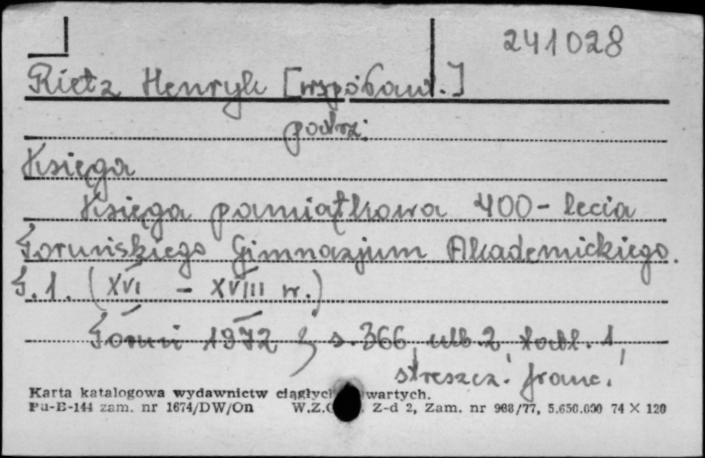 241028
Rietz Henryk [współaut.]
patrz:
Księga
Księga pamiątkowa 400-lecia
Toruńskiego Gimnazjum Akademickiego.
T.1. (XVI - XVIII w.)
Toruń 1972 s.366 nlb.2 tabl.1
streszcz. franc.
Karta katalogowa wydawnictw ciągłych wartych.
Pu-B-144 zam. nr 1674/DW/On W.Z. Z-d 2, Zam. nr 988/77, 5.650.000 74 X 120